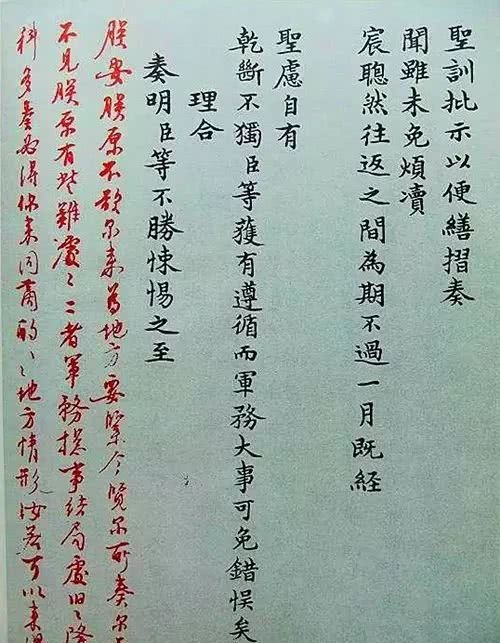 聖訓批示以便繕摺奏
聞雖未免煩瀆
宸聰然往返之間為期不過一月既経
聖慮自有
乾斷不獨臣等獲有遵循而軍務大事可免錯悞矣
理合
奏明臣等不勝悚惕之至
朕安朕原不欲尔来為地方要緊今覽尔所奏尔
不見朕原有些難處〻二者軍務總事結局處旧〻隆
科多奏必得你来同商酌〻地方情形汝若可以来